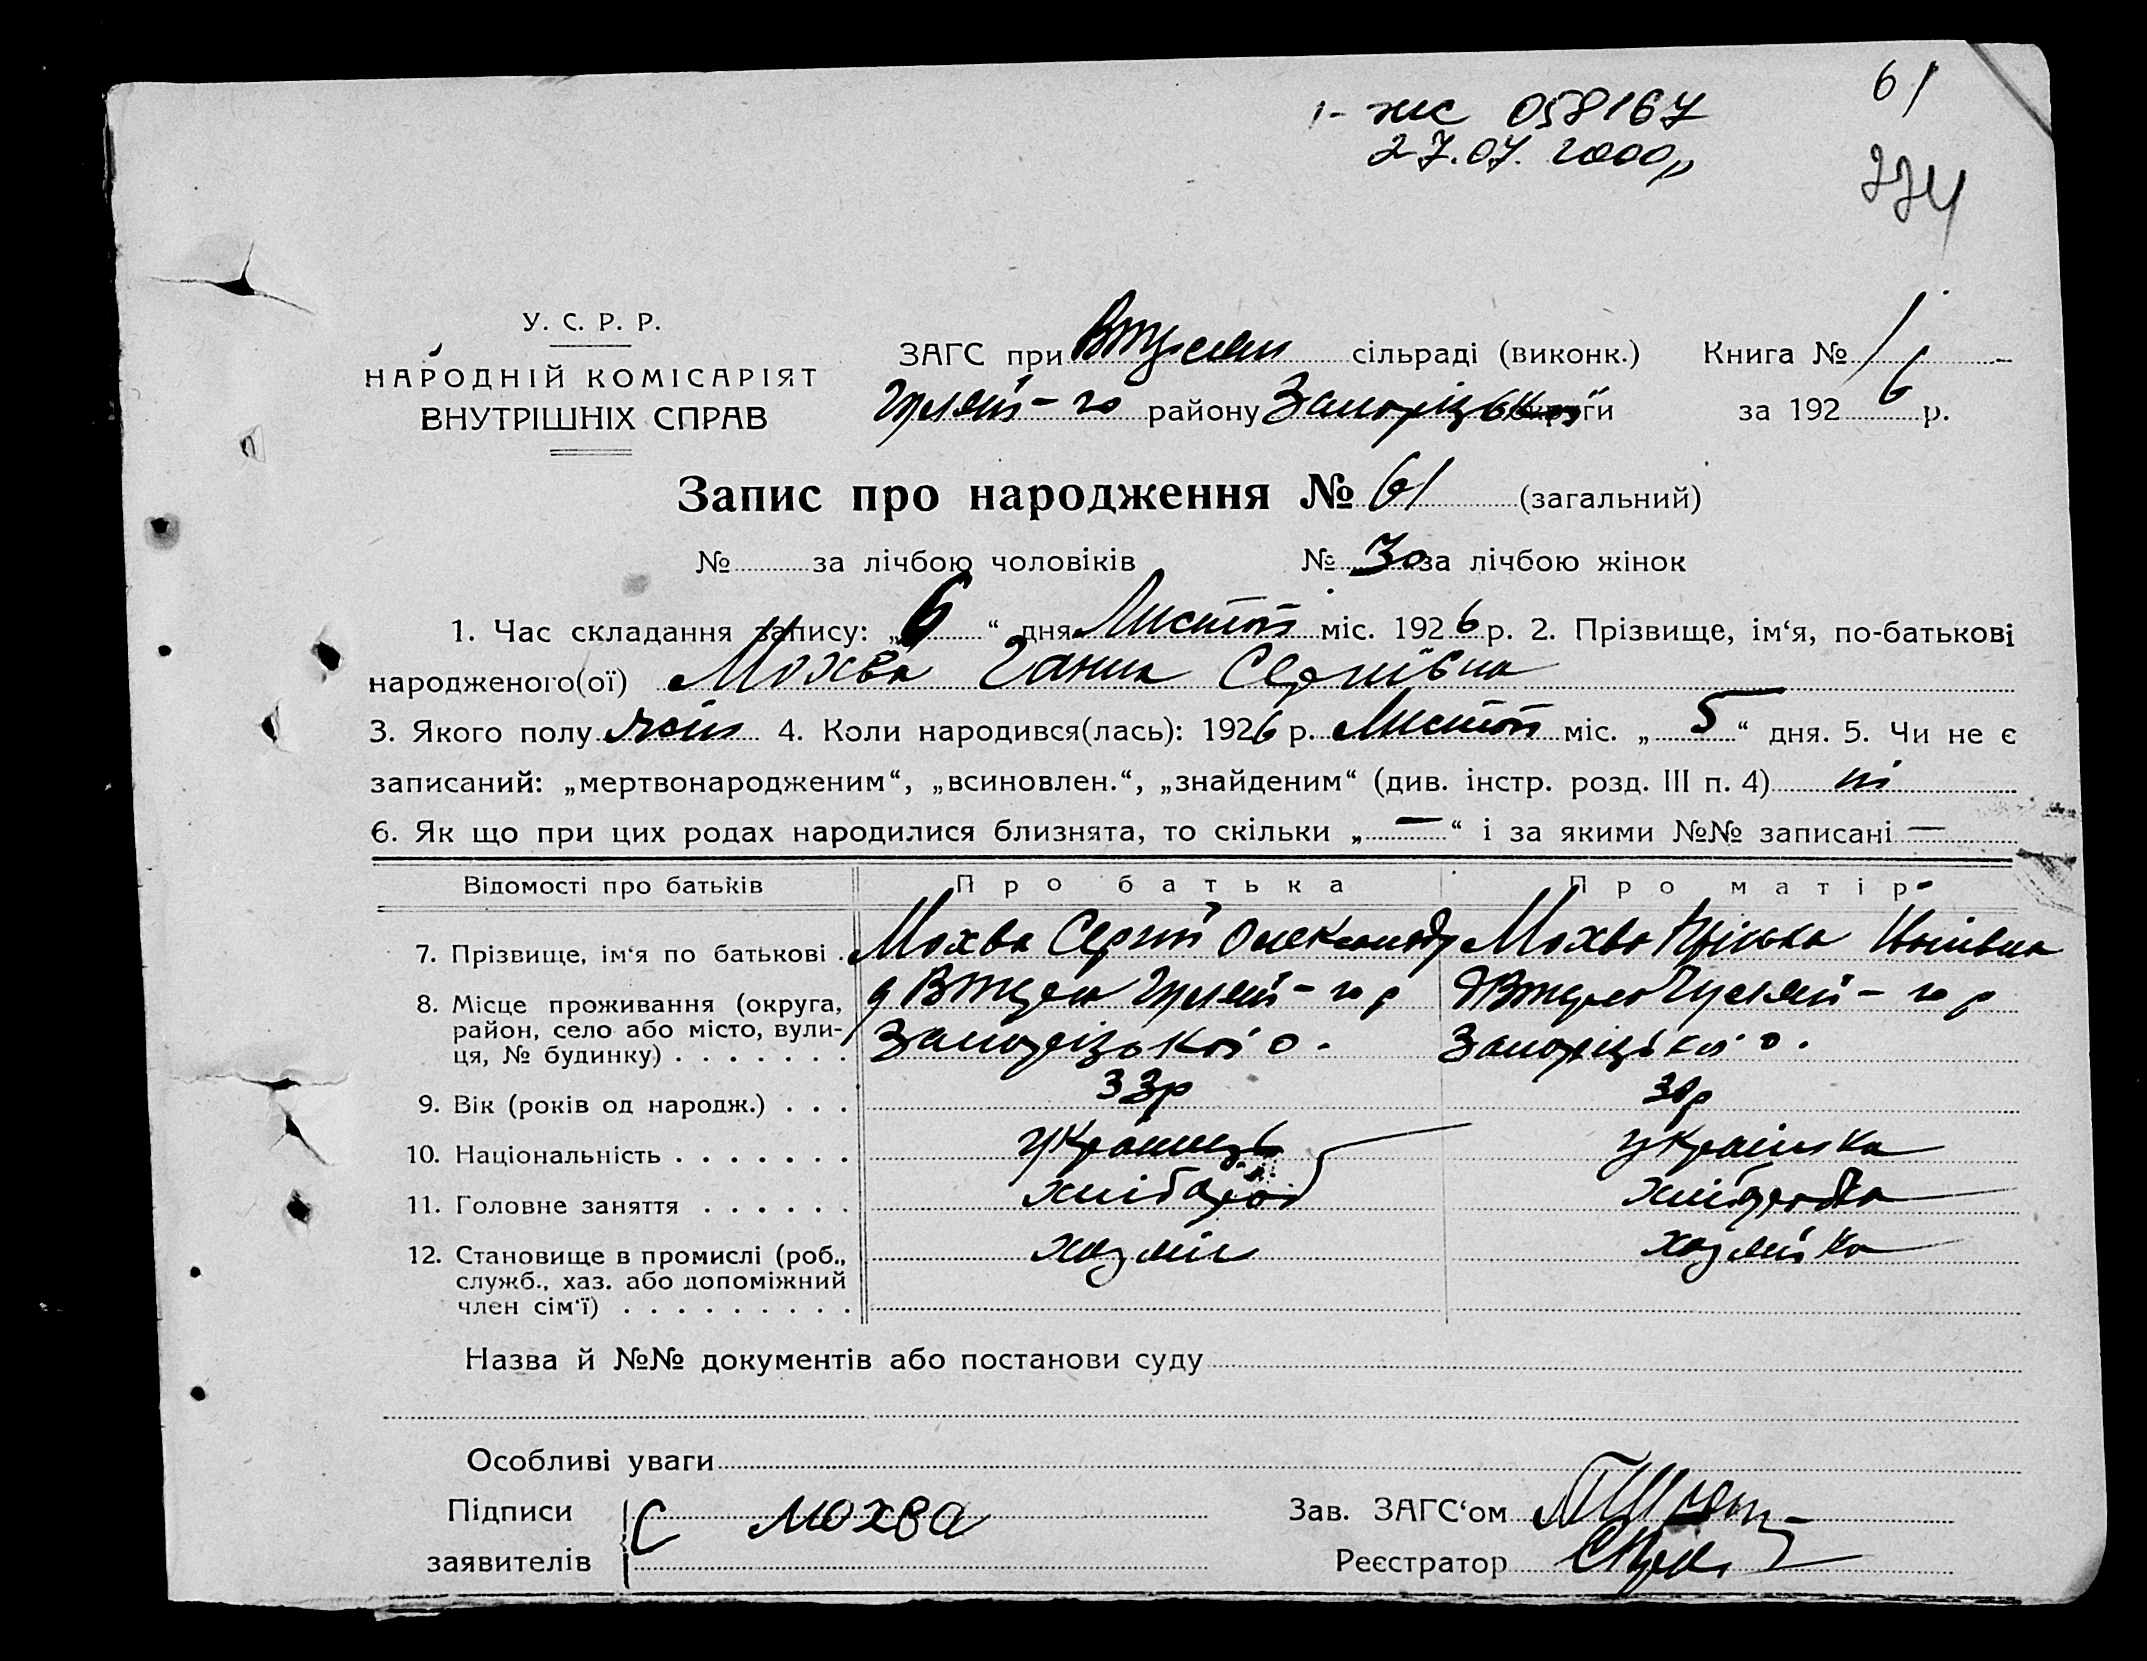 61
1- жс 058167
27.07.2000р
274
У. С. Р. Р.
НАРОДНІЙ КОМІСАРІЯТ
ВНУТРІШНІХ СПРАВ
ЗАГС при сільраді (виконк.) Книга № 1
Гуляй-го району Запорізької округи за 1926 р.
Запис про народження № 61 (загальний)
№ за лічбою чоловіків № 30 за лічбою жінок
1. Час складання запису: „6“ дня Листоп міс. 1926 р. 2. Прізвище, ім‘я, по-батькові
народженого(ої) Мохва Ганна Сергиївна
3. Якого полу жін 4. Коли народився(лась): 1926 р. Листоп міс. „5“ дня. 5. Чи не є
записаний: „мертвонародженим“, „всиновлен.“, „знайденим“ (див. інстр. розд. III п. 4) ні
6. Як що при цих родах народилися близнята, то скільки „—“ і за якими №№ записані —
Відомості про батьків Про батька Про матір
7. Прізвище, ім‘я по батькові . Мохва Сергій Олександр Мохва
8. Місце проживання (округа, Гуляй-го р Гуляй-го р
район, село або місто, вули-
ця, № будинку) . . . . . . . Запорізької о. Запорізької о.
9. Вік (років од народж.) . . . 33р 30р
10. Національність . . . . . . . українець українка
11. Головне заняття . . . . . . хлібороб хліборобка
12. Становище в промислі (роб., хазяїн хазяйка
служб., хаз. або допоміжний
член сім‘ї) . . . . . . . . .
Назва й №№ документів або постанови суду
Особливі уваги
Підписи С Мохва Зав. ЗАГС‘ом
заявителів Реєстратор